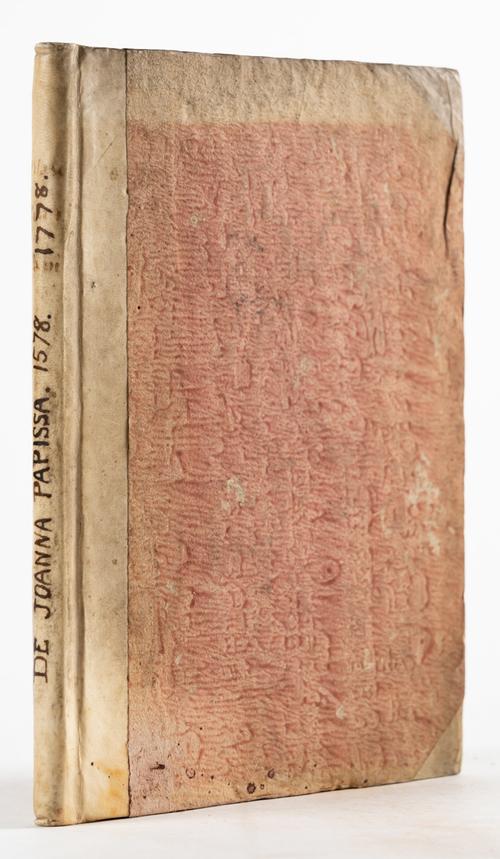 DE JOANNA PAPISSA. 1578. 1778.